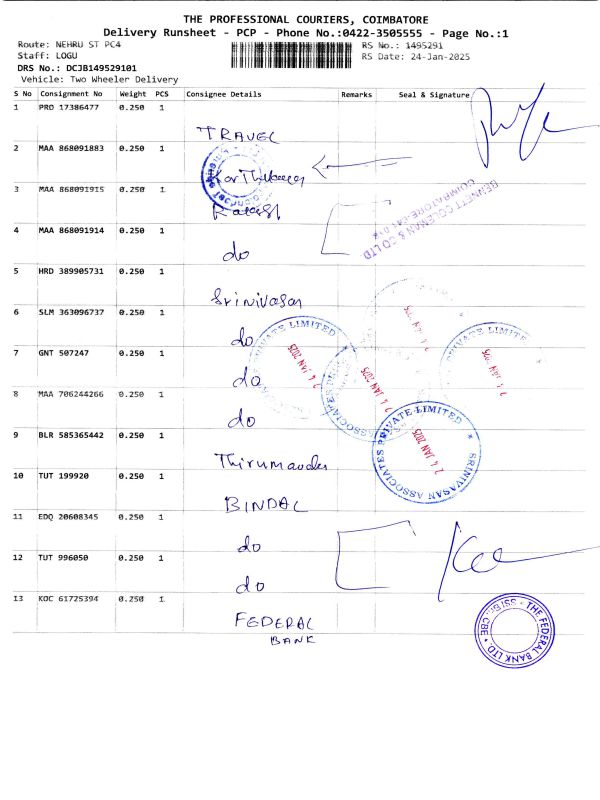 THE PROFESSIONAL COURIERS, COIMBATORE
Delivery Runsheet - PCP - Phone No.:0422-3505555 - Page No.:1
Route: NEHRU ST PC4 RS No.: 1495291
Staff: LOGU RS Date: 24-Jan-2025
DRS No.: DCJB149529101
Vehicle: Two Wheeler Delivery
S No Consignment No Weight PCS Consignee Details Remarks Seal & Signature
1 PRO 17386477 0.250 1
TRAVEL
2 MAA 868091883 0.250 1
3 MAA 868091915 0.250 1
BENNETT COLEMAN & CO LTD
COIMBATORE-641 018
4 MAA 868091914 0.250 1
do
5 HRD 389905731 0.250 1
Srinivasan
6 SLM 363096737 0.250 1
do
PRIVATE LIMITED
24 JAN 2025
7 GNT 507247 0.250 1
do
24 JAN 2025
8 MAA 706244266 0.250 1
do
SRINIVASAN ASSOCIATES PRIVATE LIMITED
24 JAN 2025
9 BLR 585365442 0.250 1
10 TUT 199920 0.250 1
BINDAL
11 EDQ 20608345 0.250 1
do
12 TUT 996050 0.250 1
do
13 KOC 61725394 0.250 1
FEDERAL
BANK
THE FEDERAL BANK LTD.